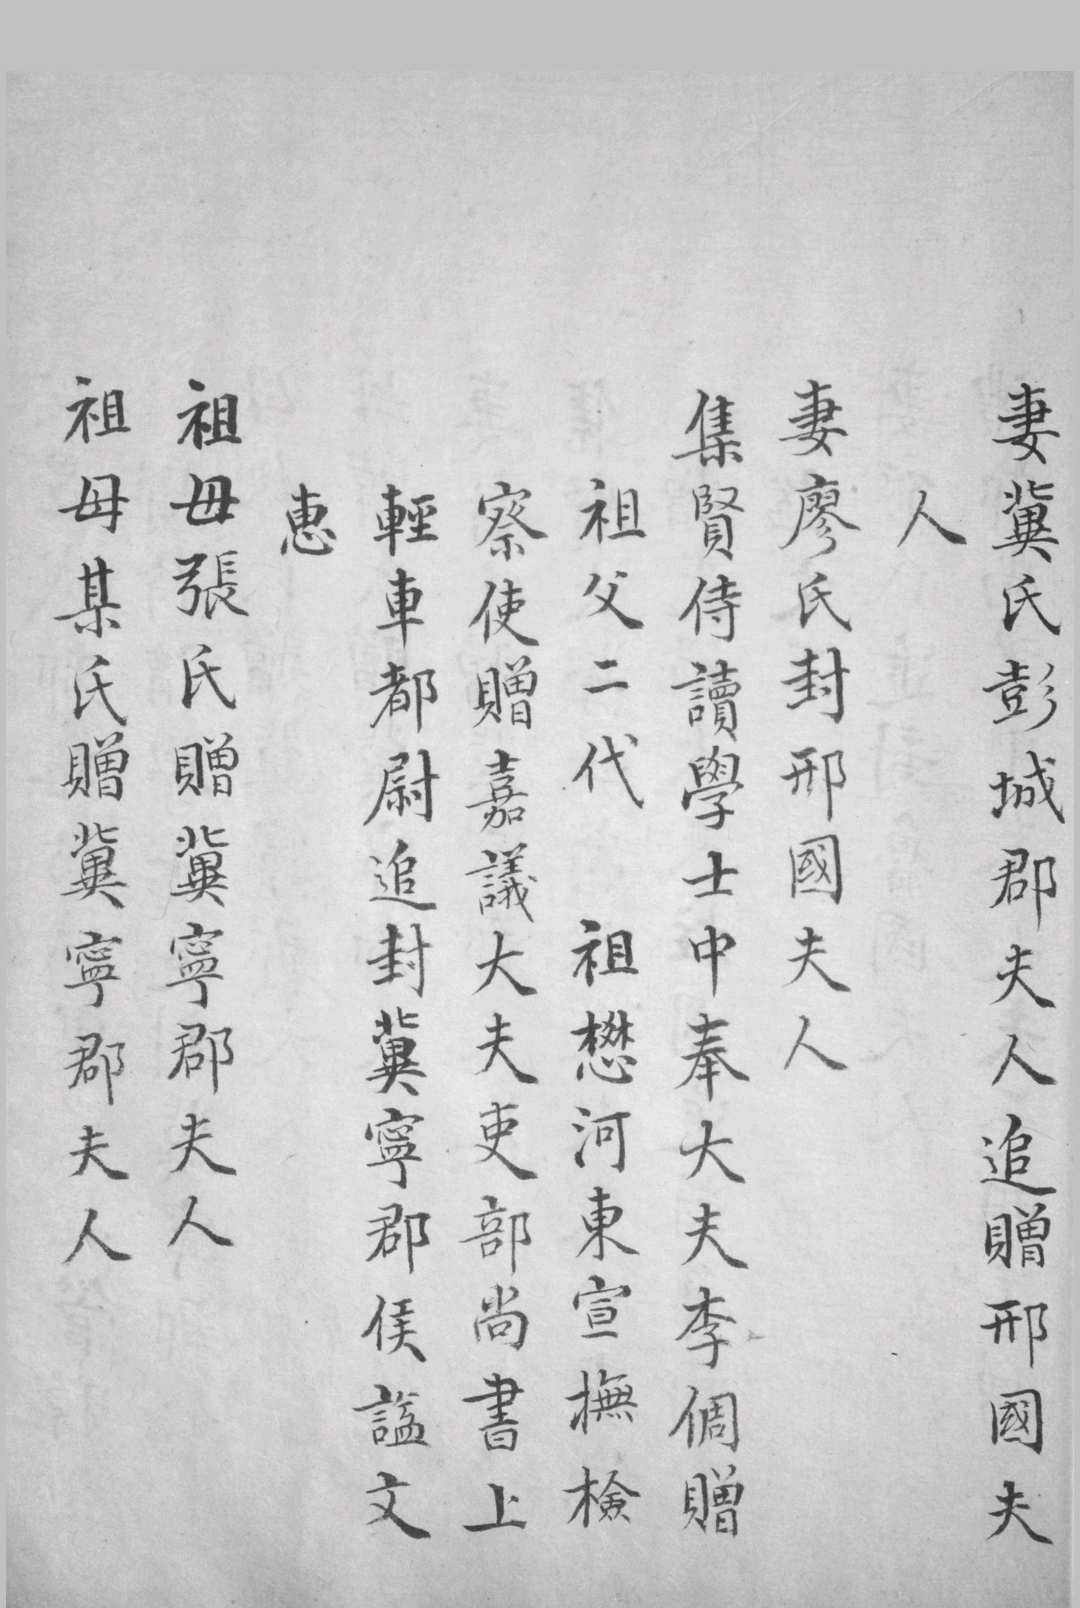 妻冀氏彭城郡夫人追贈邢國夫
人
妻廖氏封邢國夫人
集賢侍讀學士中奉大夫李倜贈
祖父二代　祖懋河東宣撫檢
察使贈嘉議大夫吏部尚書上
輕車都尉追封冀寧郡侯諡文
惠
祖母張氏贈冀寧郡夫人
祖母某氏贈冀寧郡夫人